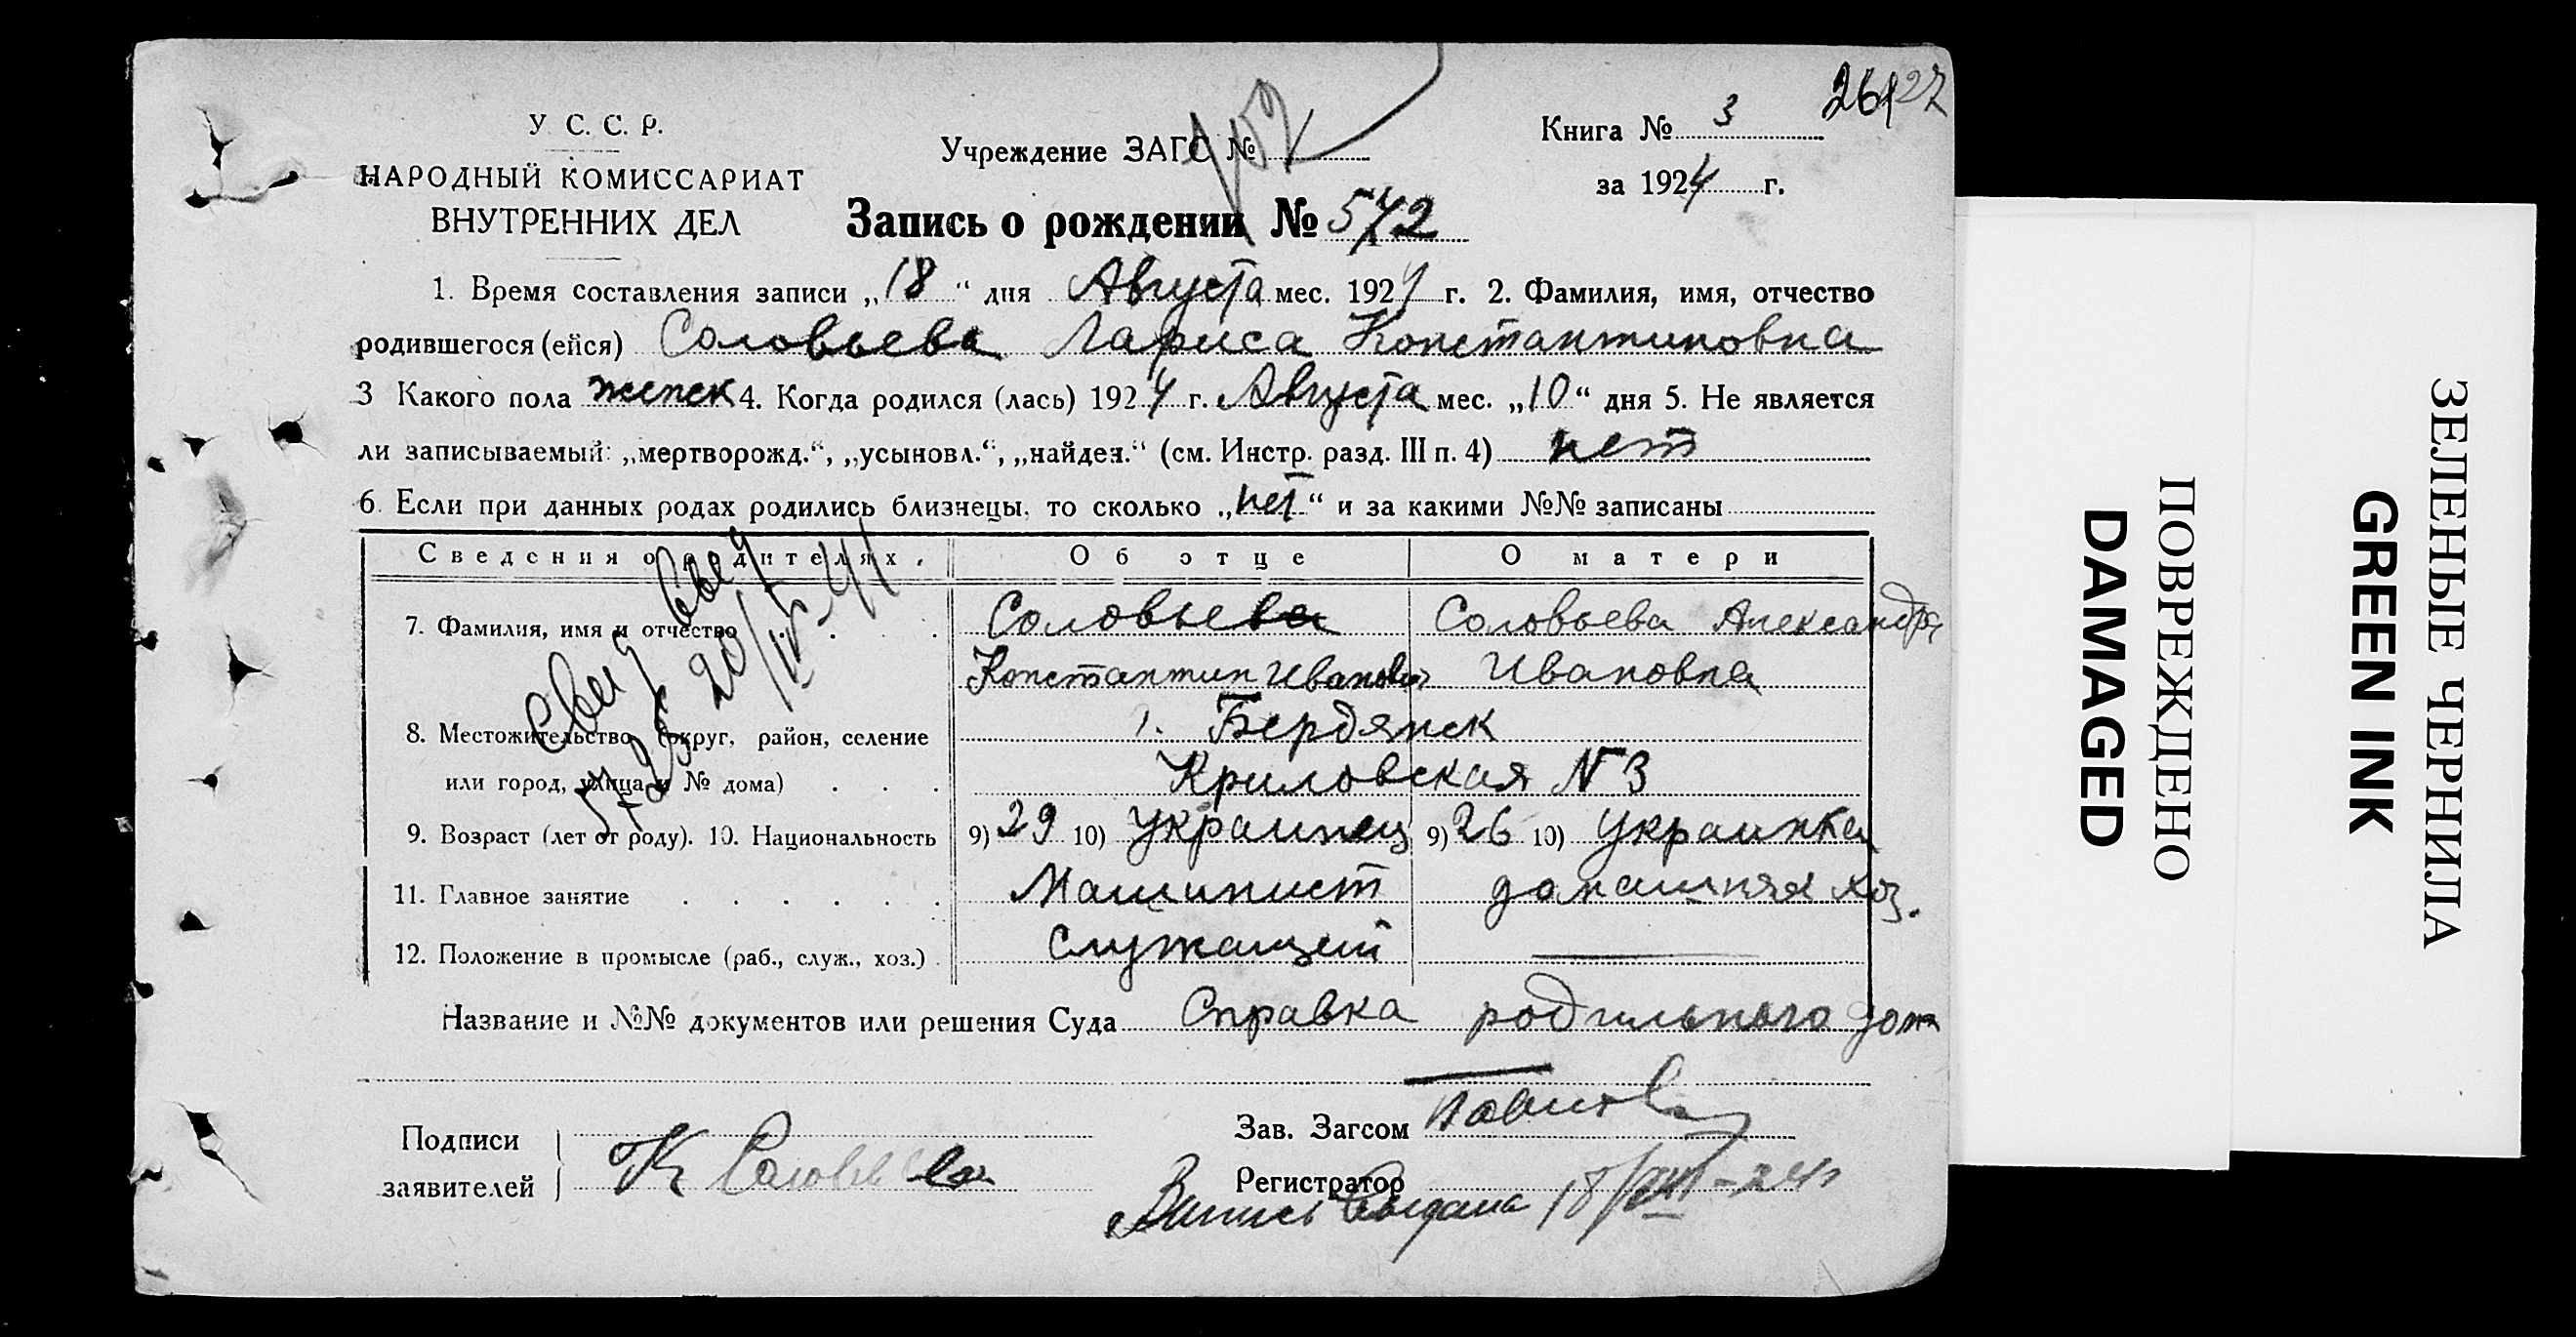 У. С. С. Р.
НАРОДНЫЙ КОМИССАРИАТ
ВНУТРЕННИХ ДЕЛ
Учреждение ЗАГС №
Книга № 3
за 1924 г.
Запись о рождении № 572
1. Время составления записи „18“ дня Августа мес. 1924 г. 2. Фамилия, имя, отчество
родившегося (ейся) Соловьева Лариса Константиновна
3 Какого пола женск 4. Когда родился (лась) 1924 г. Августа мес. „10“ дня 5. Не является
ли записываемый: „мертворожд.“, „усыновл.“, „найден.“ (см. Инстр. разд. III п. 4) нет
6. Если при данных родах родились близнецы, то сколько „нет“ и за какими №№ записаны
Сведения о родителях. Об отце О матери
7. Фамилия, имя и отчество Соловьева Соловьева Александра
Константин Иванович Ивановна
8. Местожительство (округ, район, селение г. Бердянск
или город, улица и № дома) Криловская N 3
9. Возраст (лет от роду). 10. Национальность 9) 29 10) Украинец 9) 26 10) Украинка
11. Главное занятие Машинист домашняя хоз.
12. Положение в промысле (раб., служ., хоз.) Служащий
Название и №№ документов или решения Суда Справка родильного дома
Подписи
заявителей К Соловьева
Зав. Загсом
Регистратор
Выпись выдана 18/VIII-24г
ПОВРЕЖДЕНО
DAMAGED
ЗЕЛЕНЫЕ ЧЕРНИЛА
GREEN INK